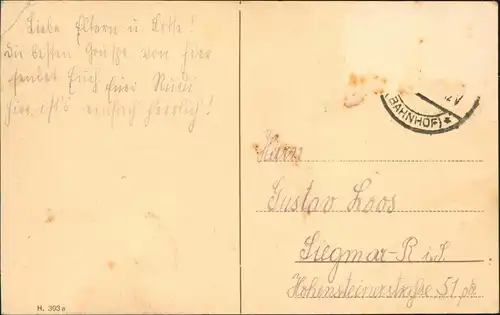 Liebe Eltern u. Lotte!
Die besten Grüße von hier
sendet Euch Euer Rudi
hier ist's einfach herrlich!
(BAHNHOF) *
Herrn
Gustav Loos
Siegmar-R i. S.
Hohensteinerstraße 51 pt.
H. 393a